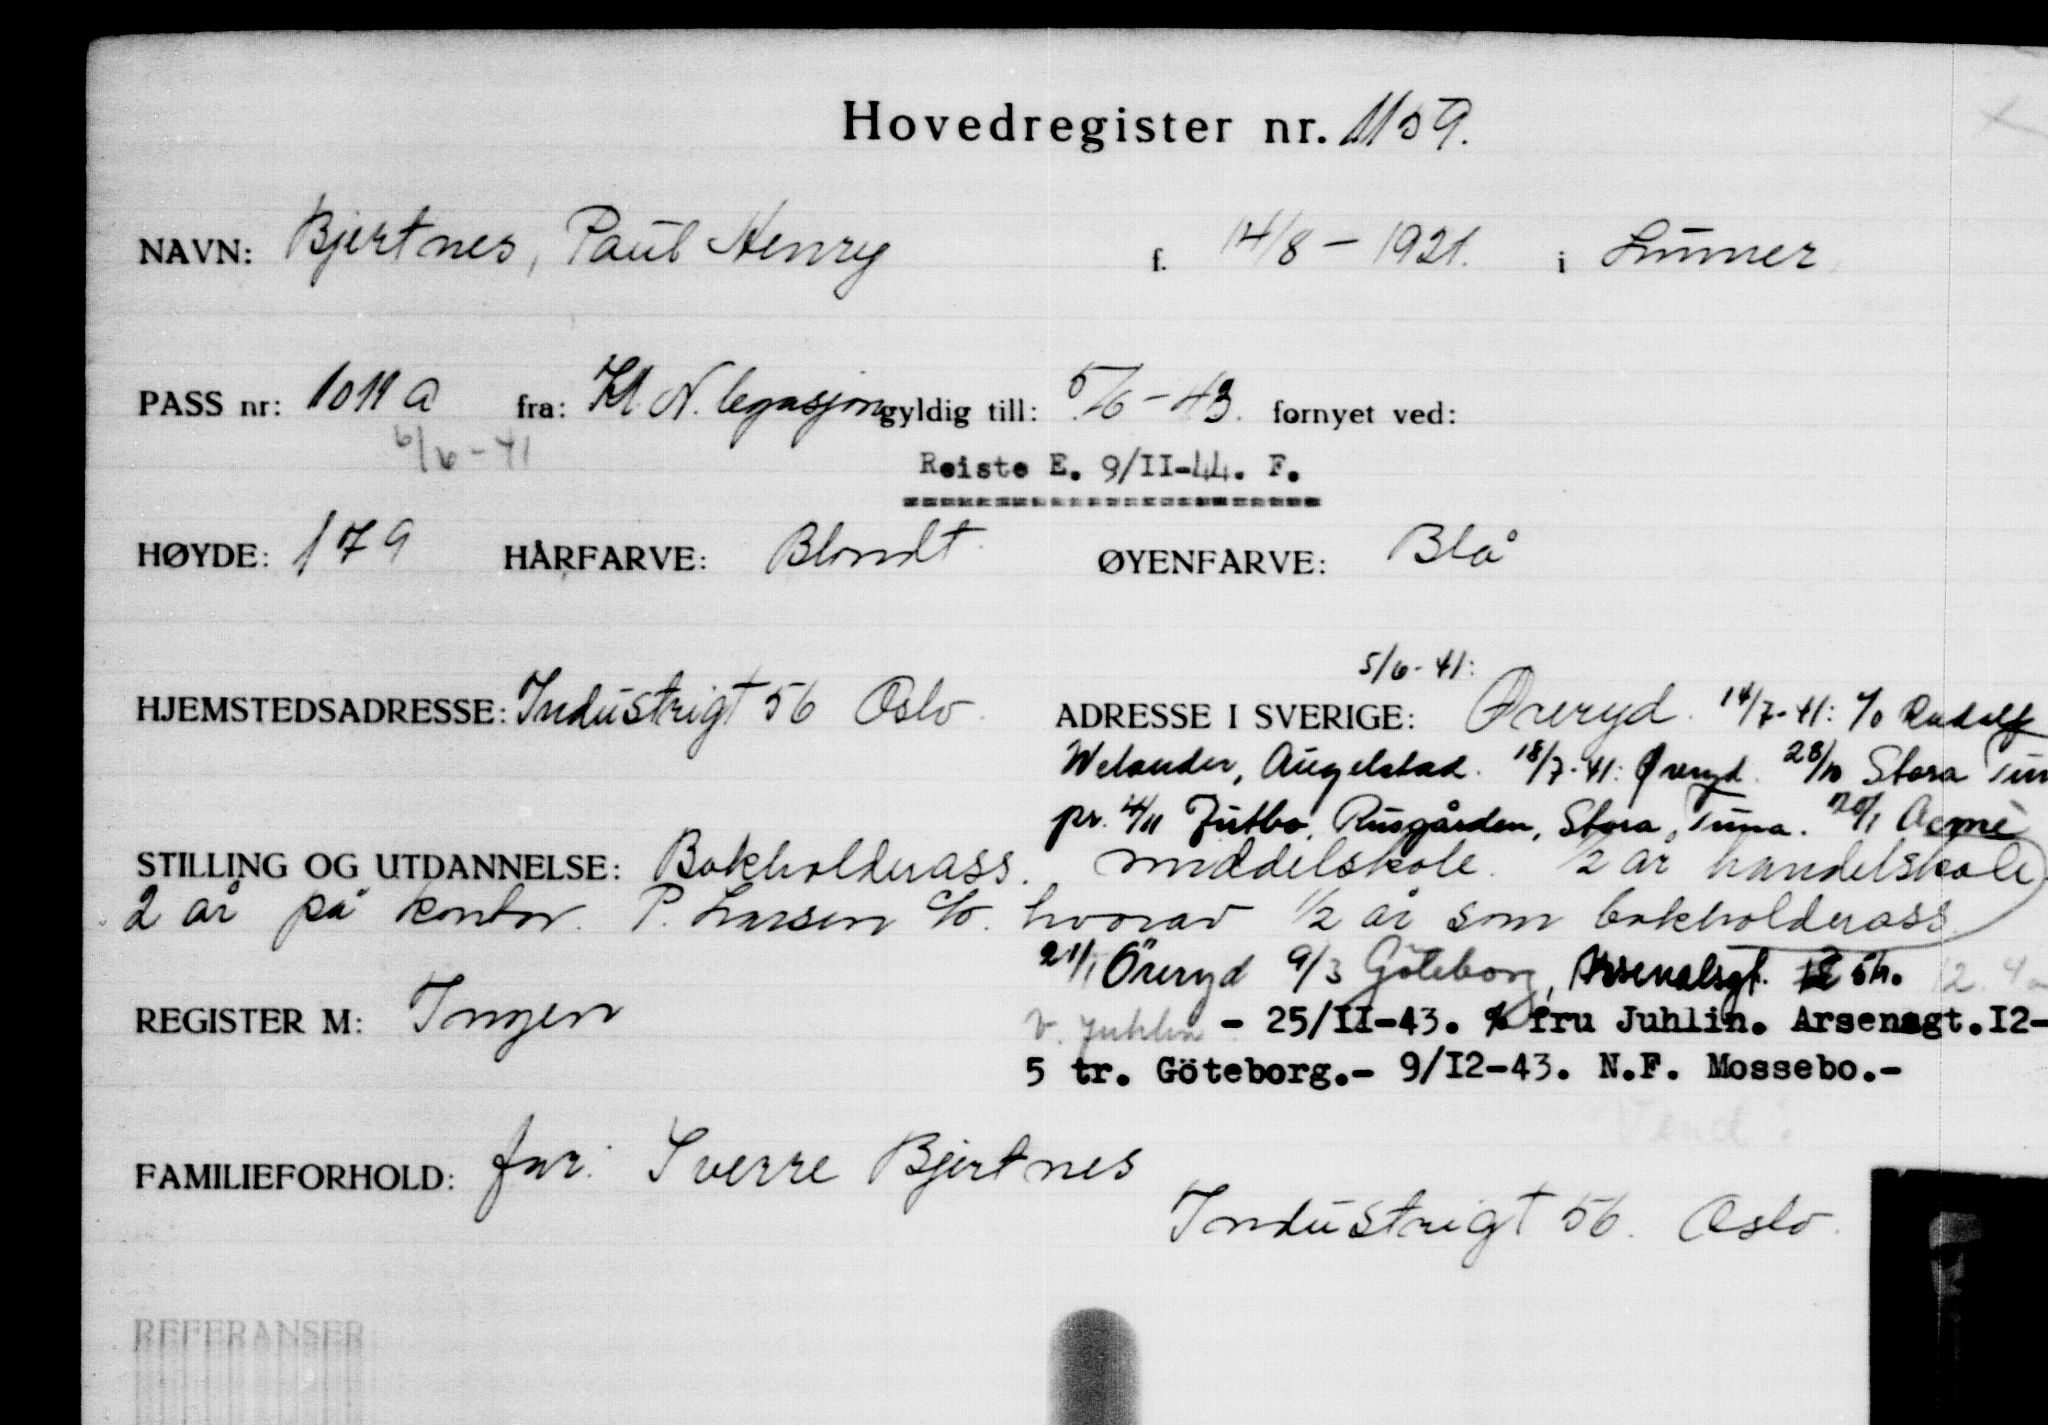 Hovedregister nr. 1159.
NAVN: Bjertnes, Paul Henry f. 14/8 - 1921. i Lunner
PASS nr: 1011 a fra: Kl. N. legasjon gyldig till: 5/6 - 43. fornyet ved:
6/6 - 41
Reiste E. 9/II-44. F.
HØYDE: 179 HÅRFARVE: Blondt. ØYENFARVE: Blå
5/6 - 41:
HJEMSTEDSADRESSE: Industrigt 56 Oslo. ADRESSE I SVERIGE: Øreryd. 14/7-41: c/o Rudolf
Welander, Äugelstad. 18/7-41: Øreryd. 28/10 Stora Tun
pr. 4/11 Jutbo, Rusgården, Stora Tuna. 20/1 Acmé
STILLING OG UTDANNELSE: Bokholderass. middelskole. 1/2 år handelskole
2 år på kontor. P. Larsen c/o. hvorav 1/2 år som bokholderass.
21/1 Öreryd 9/3 Göteborg, Arsenalsgt. 12 5h. 12. 4
REGISTER M: Ingen
v. Juhlin - 25/II-43. % fru Juhlin. Arsenagt.I2-
5 tr. Göteborg.- 9/I2-43. N.F. Mossebo.-
Vend!
FAMILIEFORHOLD: far: Sverre Bjertnes
Industrigt 56. Oslo.
REFERANSER